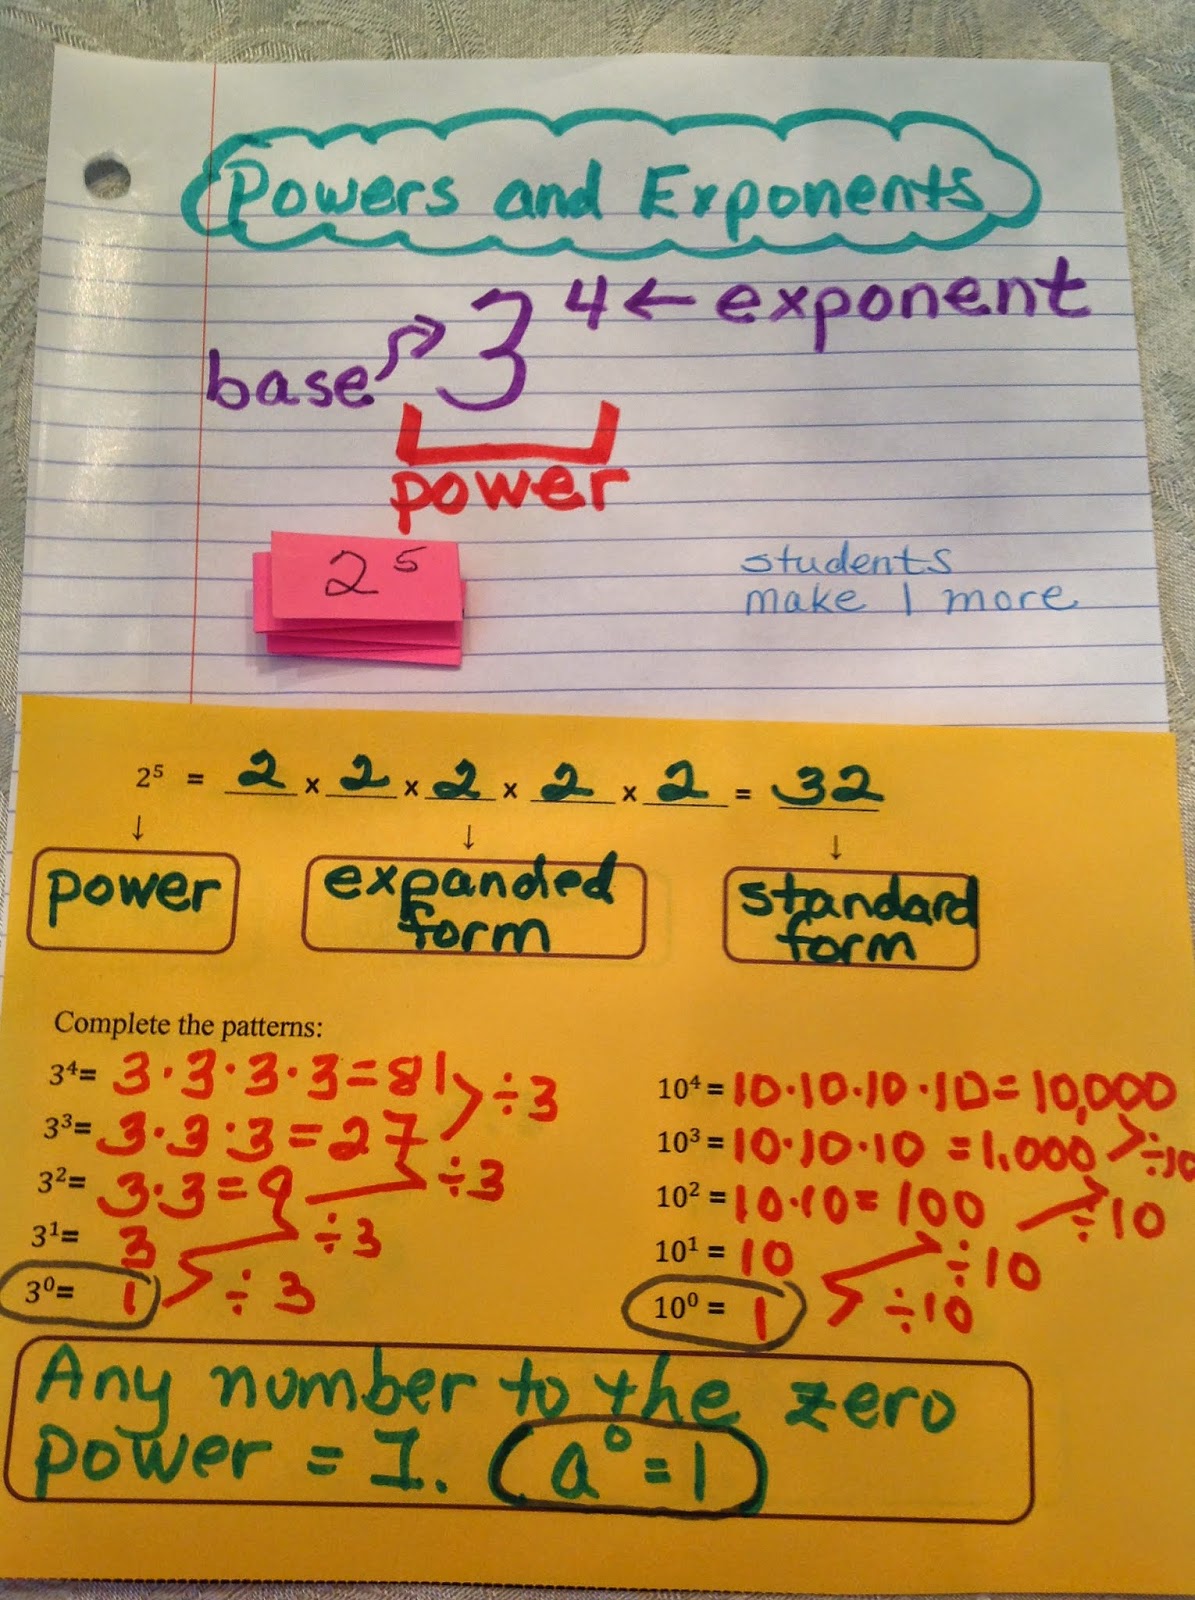 Powers and Exponents
3⁴ ← exponent
base
power
2⁵
students
make 1 more
2⁵ = 2 x 2 x 2 x 2 x 2 = 32
↓ ↓ ↓
power expanded form standard form
Complete the patterns:
3⁴= 3·3·3·3=81 ÷3
3³= 3·3·3=27 ÷3
3²= 3·3=9 ÷3
3¹= 3 ÷3
3⁰= 1
10⁴ = 10·10·10·10=10,000
10³ = 10·10·10=1,000 ÷10
10² = 10·10=100 ÷10
10¹ = 10 ÷10
10⁰ = 1 ÷10
Any number to the zero
power = 1. a⁰=1